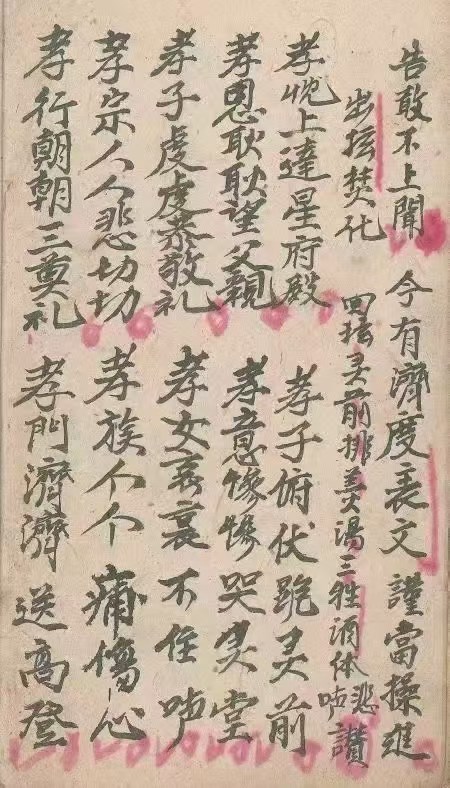 告敢不上聞 今有濟度表文 謹當操進
出焚化 回灵前排羹湯三牲酒体 悲声讃
孝悅上達星府殿 孝子俯伏跪灵前
孝恩耿耿望父親 孝意慘慘哭灵堂
孝子虔虔恭敬礼 孝女哀哀不住声
孝宗人人悲切切 孝族个个痛傷心
孝行朝朝三奠礼 孝門濟濟送高登